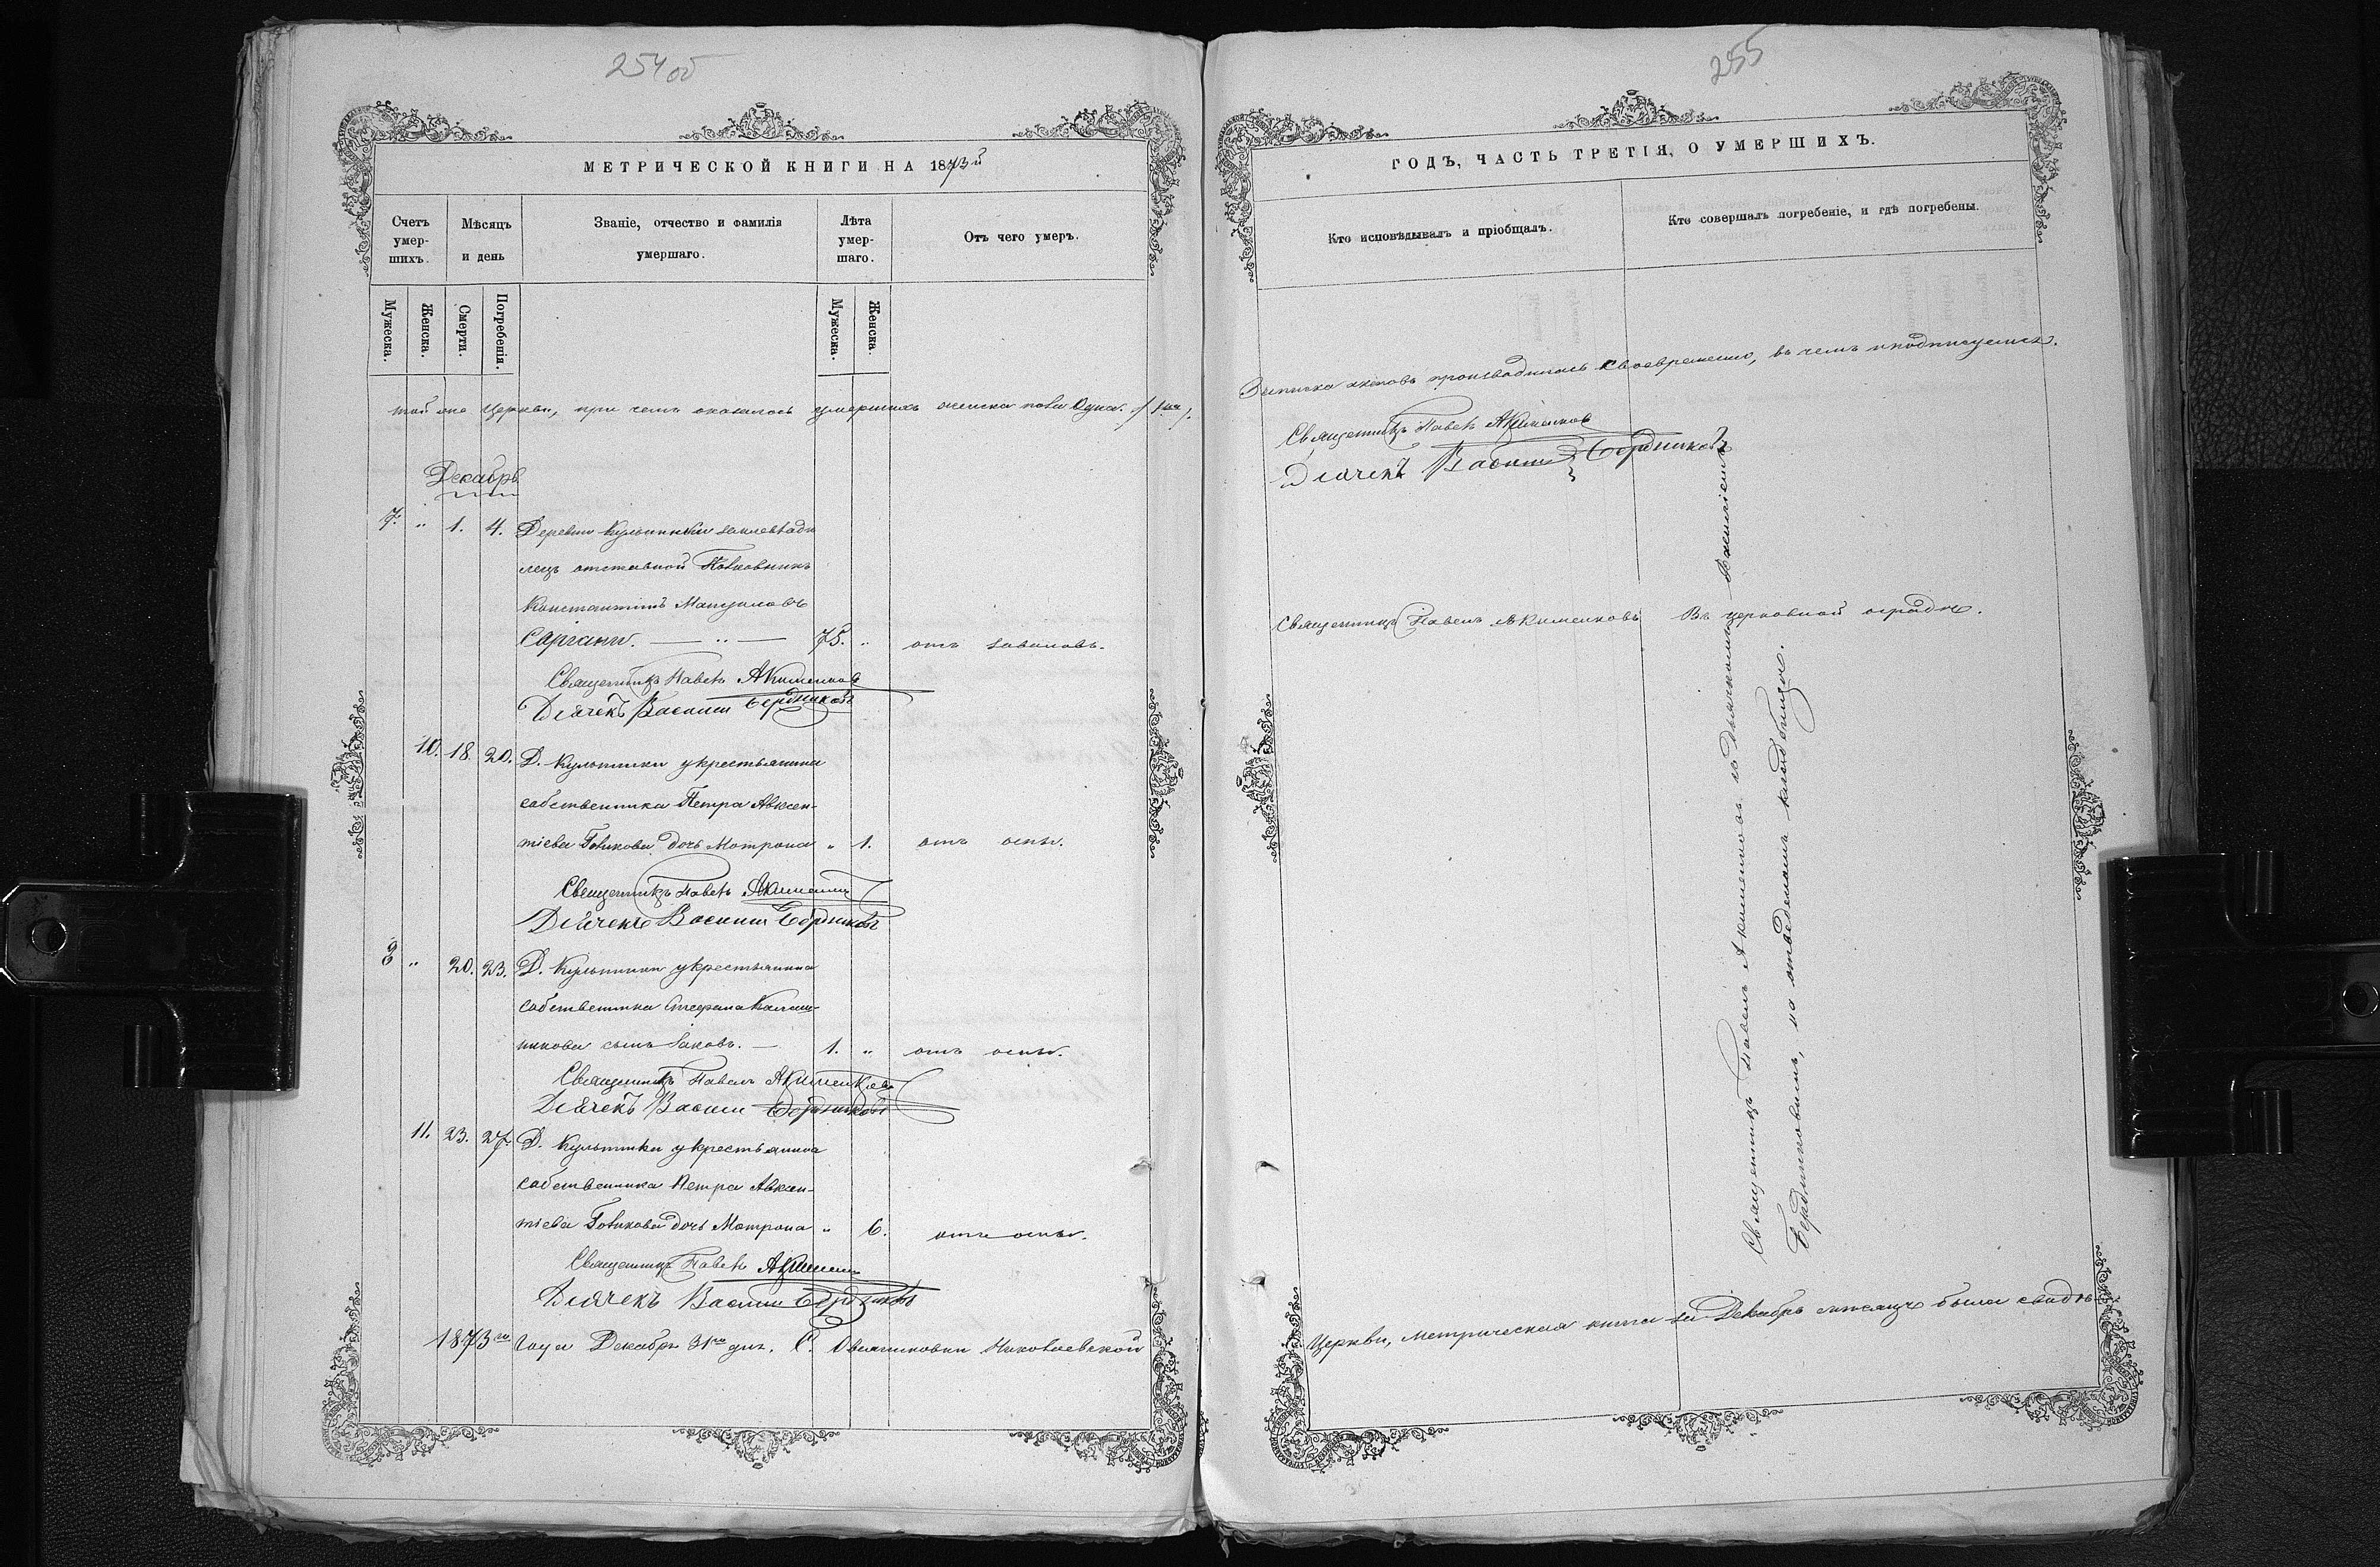 254об
МЕТРИЧЕСКОЙ КНИГИ НА 1873й
Счетъ умер-шихъ.
Мѣсяцъ и день
Званіе, отчество и фамилія умершаго.
Лѣта умер-шаго.
Отъ чего умеръ.
Мужеска.
Женска.
Смерти.
Погребенія.
Мужеска.
Женска.
той же Церкви, при чемъ оказалось умершихъ женска пола Одна. /1на/.
Декабрь
7. „ 1. 4. Деревни Кульпинки землевладѣ
лецъ отставной Полковникъ
Константинъ Мануиловъ
Саріани. — „ — 75. „ отъ
Священникъ Павелъ Акименковъ
Дьячекъ Василій Бердниковъ
10. 18. 20. Д. Кульпинки у крестьянина
собственника Петра Авксен-
тіева дочь Мотрона „ 1. отъ оспы.
Священникъ Павелъ Акименковъ
Дьячекъ Василій Бердниковъ
8 „ 20. 23. Д. Кульпинки у крестьянина
собственника Стефана Калаш-
никова сынъ Іаковъ. — 1. „ отъ оспы.
Священникъ Павелъ Акименковъ
Дьячекъ Василій Бердниковъ
11. 23. 27. Д. Кульпинки у крестьянина
собственника Петра Авксен-
тіева дочь Мотрона „ 6. отъ оспы.
Священникъ Павелъ Акименковъ
Дьячекъ Василій Бердниковъ
1873го Года Декабря 31го дня. С. Николаевской
255
ГОДЪ, ЧАСТЬ ТРЕТІЯ, О УМЕРШИХЪ.
Кто исповѣдывалъ и пріобщалъ.
Кто совершалъ погребеніе, и гдѣ погребены.
Записка актовъ производилась своевременно, въ чемъ и подписуемся.
Священникъ Павелъ Акименковъ
Дьячекъ Василій Бердниковъ
Священникъ Павелъ Акименковъ Въ церковной оградѣ.
Священникъ Павелъ Акименковъ съ дьячкомъ Василіемъ
Бердниковымъ, на отведенномъ кладбищѣ.
Церкви, метрическая книга за Декабрь мѣсяцъ была свидѣ-